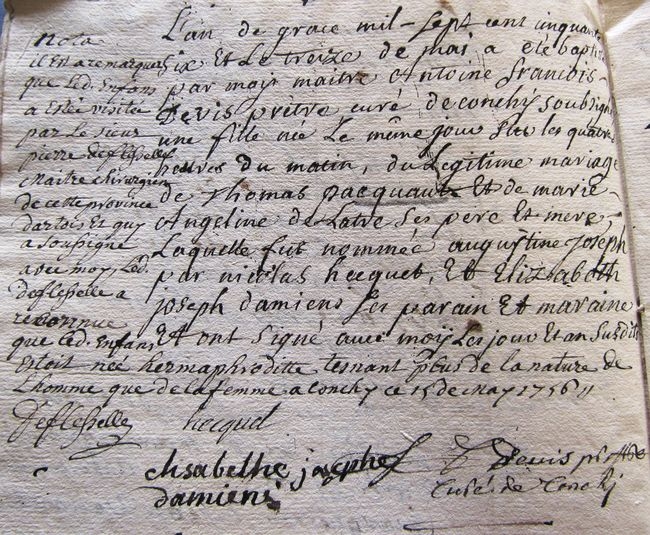 L'an de grace mil - Sept cent cinquante
Six Et Le treize de mai a eté baptisé
par moys maitre Antoine francois -
Devis prêtre curé de conchy Soubsigné
une fille née Le même jour Sur les quatre
heures du matin, du Legitime mariage
de Thomas pacquaut Et de marie -
Angeline de Latre Ses pere Et mere,
Laquelle fut nommée augustine Joseph
par nicolas hecquet, Et Elizabeth
joseph damiens Ses parain Et maraine
Et ont Signé avec moy Les jour Et an Susdits
nota
il Est a remarquer
que Led. Enfans
a Esté visitée
par Le Sieur
pierre deflesselle
Maitre chirurgien
de cette province
dartois Et quy
a Soussigné
avec moy, Led.
deflesselle a
reconnue
que Led. Enfans
Estoit née hermaphroditte tenant plus de la nature de
L'homme que de la femme a Conchy ce 15 de May 1756 //
Deflesselle
hecquet
elisabethe josephe
damiens
Devis
Curé de Conchy